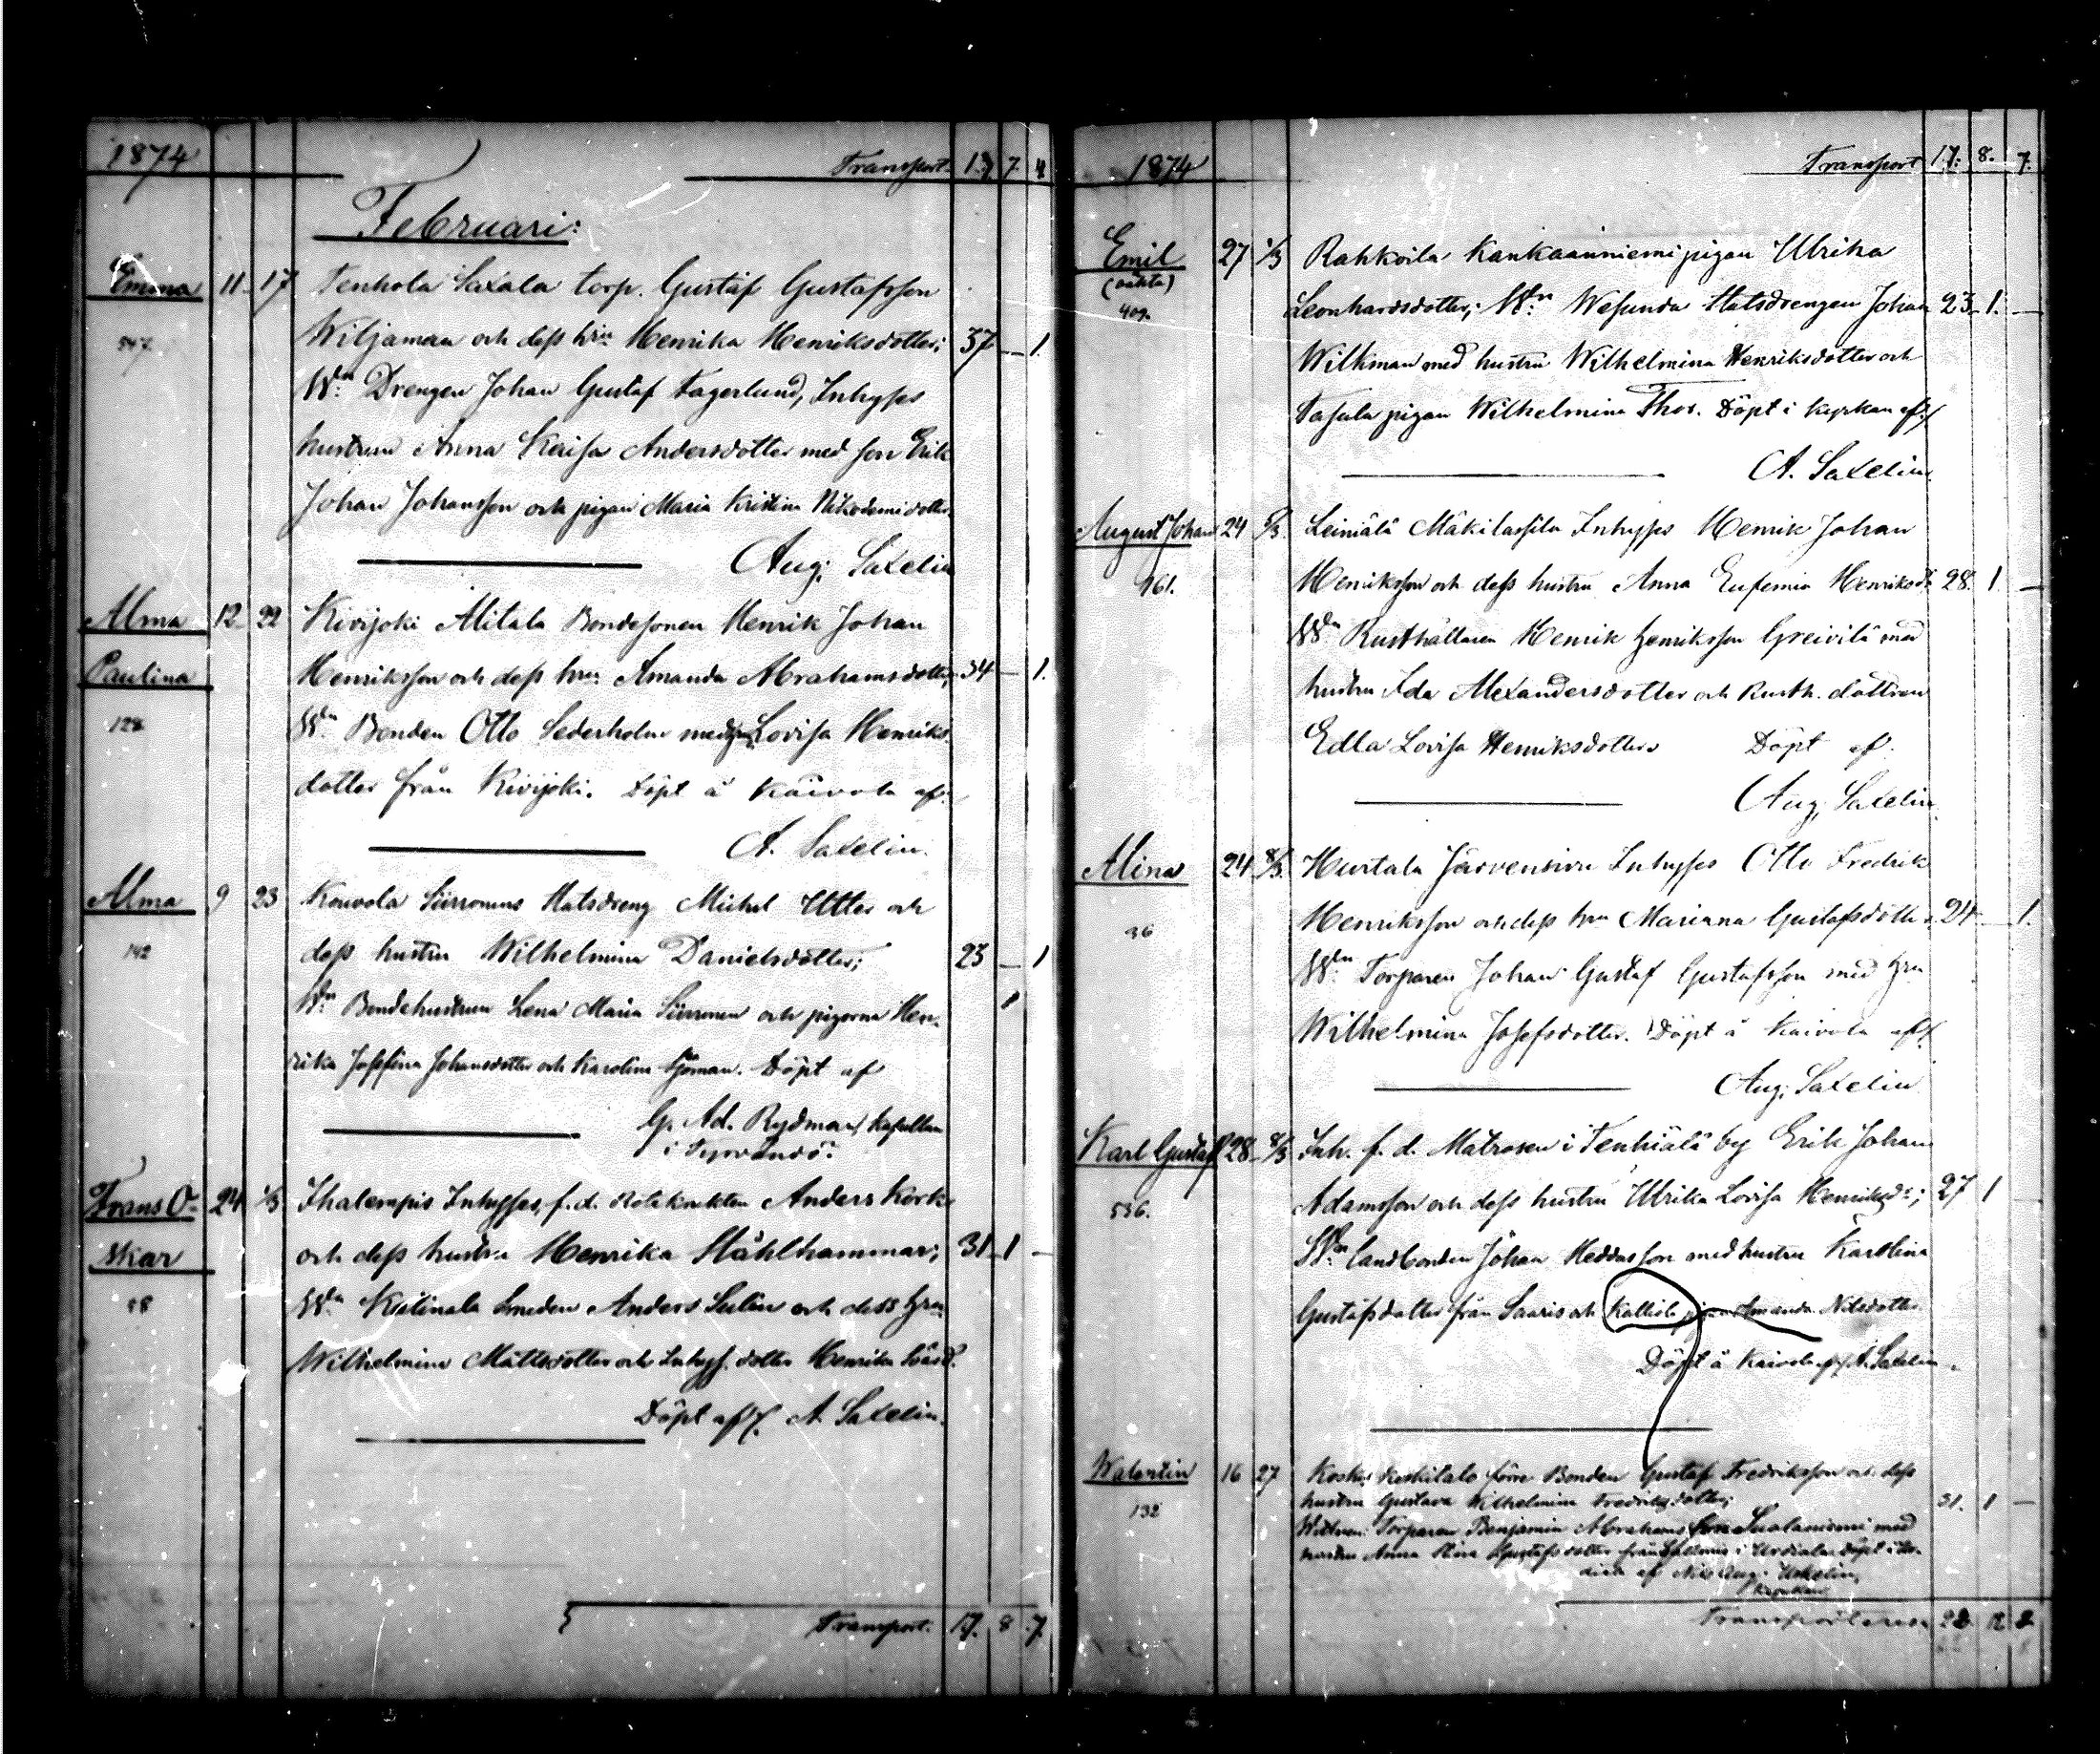 1874 Transport 17 7 4
Februari:
Emma 11 17 Tenhola Saxala torp. Gustaf Gustafsson
547 Wiljaman och dess hru Henrika Henriksdotter; 37 — 1.
Wn Drengen Johan Gustaf Fagerlund, Inhyses
hustrun Anna Kaisa Andersdotter med son Erik
Johan Johansson och pigan Maria Kristina Nikodemidotter.
Aug. Saxelin
Alma 12 22 Kivijoki Alitala Bondesonen Henrik Johan
Paulina Henriksson och dess hru Amanda Abrahamsdotter; 34 — 1.
128 Wn Bonden Otto Sederholm med Lovisa Henriks-
dotter från Kivijoki. Döpt å Kaivola af
A. Saxelin.
Alma 9 23 Kouvola Siironens Statsdreng Michel Utter och
142 dess hustru Wilhelmina Danielsdotter; 23 — 1
Wn Bondehustrun Lena Maria Siironen och pigorna Hen-
rika Josefina Johansdotter och Karolina Sjöman. Döpt af
G. Ad. Rydman, Kapellan
i Tyrvändö.
Frans O- 24 1/3 Ihalempis Inhyses, f. d. Rotekarlen Anders Kork
skar och dess hustru Henrika Ståhlhammar; 31 1 —
98 Wn Kulinala Smeden Anders Sulin och dess hru
Wilhelmina Mattsdotter och Inhys. dotter Henrika Svärd.
Döpt af A. Saxelin.
Transport. 17. 8 7.
1874 Transport 17. 8. 7.
Emil 27 1/3 Rahkoila Kankaanniemi pigan Ulrika
(oäkta) Leonhardsdotter; Wn Wesunda Statsdrengen Johan 23 1. —
409. Wilkman med hustru Wilhelmina Henriksdotter och
Tasula pigan Wilhelmina Thor. Döpt i kyrkan af
A. Saxelin.
August Johan 24 8/3 Leiniälä Mäkilassila Inhyses Henrik Johan
161. Henriksson och dess hustru Anna Eufemia Henriksdr 28. 1 —
Wn Rusthållaren Henrik Henriksson Greivilä med
hustru Ida Alexandersdotter och Rusth. dottren
Edla Lovisa Henriksdotter Döpt af
Aug. Saxelin.
Alina 24 8/3 Hurtala Järvensivu Inhyses Otto Fredrik
36 Henriksson och dess hru Marianna Gustafsdotter. 24 — 1.
Wn Torparen Johan Gustaf Gustafsson med hru
Wilhelmina Josefsdotter. Döpt å Kaivola af
Aug. Saxelin
Karl Gustaf 28 8/3 Inh. f. d. Matrosen i Tenhiälä by Erik Johan
536. Adamsson och dess hustru Ulrika Lovisa Henriksdr; 27 1 —
Wn Landbonden Johan Heddasson med hustru Karolina
Gustafsdotter från Saaris och Kalliola pigan Amanda Nilsdotter
Döpt å Kaivola af A. Saxelin.
Walentin 16 27 Koskis Keskitalo förre Bonden Gustaf Fredriksson och dess
132 hustru Gustava Wilhelmina Fredriksdotter; 31. 1 —
Wittnen: Torparen Benjamin Abrahamsson Sualaniemi med
hustru Anna Stina Gustafsdotter från i Urdiala. Döpt i Ur-
diala af Nils Aug.
Transport 22 12 8